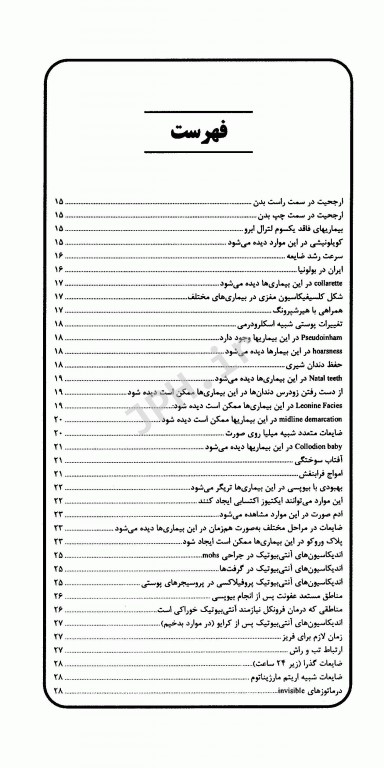 فهرست
ارجحیت در سمت راست بدن ........ ۱۵
ارجحیت در سمت چپ بدن ........ ۱۵
بیماریهای فاقد یکسوم لترال ابرو ........ ۱۵
کویلونیشی در این موارد دیده می‌شود ........ ۱۵
سرعت رشد ضایعه ........ ۱۶
ایران در بولونیا ........ ۱۶
collarette در این بیماری‌ها دیده می‌شود ........ ۱۷
شکل کلسیفیکاسیون مغزی در بیماری‌های مختلف ........ ۱۷
همراهی با هیرشپرونگ ........ ۱۷
تغییرات پوستی شبیه اسکلرودرمی ........ ۱۸
Pseudoinham در این بیماریها وجود دارد ........ ۱۸
hoarsness در این بیمارها دیده می‌شود ........ ۱۸
حفظ دندان شیری ........ ۱۸
Natal teeth در این بیماری‌ها دیده می‌شود ........ ۱۹
از دست رفتن زودرس دندان‌ها در این بیماری‌ها ممکن است دیده شود ........ ۱۹
Leonine Facies در این بیماری‌ها ممکن است دیده شود ........ ۱۹
midline demarcation در این بیماریها ممکن است دیده شود ........ ۲۰
ضایعات متعدد شبیه میلیا روی صورت ........ ۲۰
Collodion baby در این بیماریها دیده می‌شود ........ ۲۱
آفتاب سوختگی ........ ۲۱
امواج فرابنفش ........ ۲۱
بهبودی با بیوپسی در این بیماری‌ها تریگر می‌شود ........ ۲۲
این موارد می‌توانند ایکتیوز اکتسابی ایجاد کنند ........ ۲۲
ادم صورت در این موارد مشاهده می‌شود ........ ۲۳
ضایعات در مراحل مختلف به‌صورت هم‌زمان در این بیماری‌ها دیده می‌شود ........ ۲۳
پلاک وروکو در این بیماری‌ها ممکن است ایجاد شود ........ ۲۳
اندیکاسیون‌های آنتی‌بیوتیک در جراحی mohs ........ ۲۵
اندیکاسیون‌های آنتی‌بیوتیک در گرفت‌ها ........ ۲۵
اندیکاسیون‌های آنتی‌بیوتیک پروفیلاکسی در پروسیجرهای پوستی ........ ۲۵
مناطق مستعد عفونت پس از انجام بیوپسی ........ ۲۶
مناطقی که درمان فرونکل نیازمند آنتی‌بیوتیک خوراکی است ........ ۲۶
اندیکاسیون‌های آنتی‌بیوتیک پس از کرایو (در موارد بدخیم) ........ ۲۷
زمان لازم برای فریز ........ ۲۷
ارتباط تب و راش ........ ۲۷
ضایعات گذرا (زیر ۲۴ ساعت) ........ ۲۸
ضایعات شبیه اریتم مارژیناتوم ........ ۲۸
درماتوزهای invisible ........ ۲۸
JPH.ir